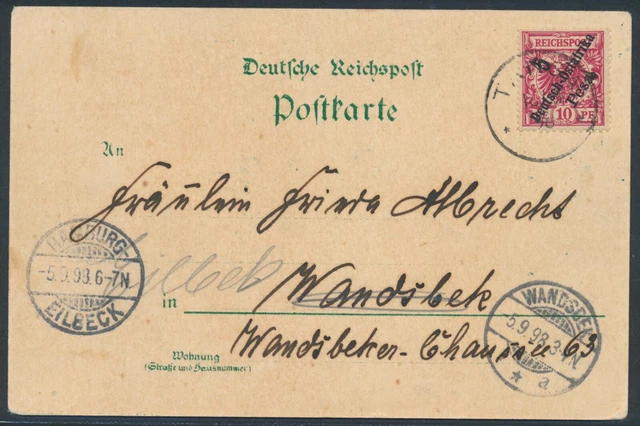 REICHSPOST
5
Deutsch-Ostafrika
Pesa
10 PF
TA
Deutsche Reichspost
Postkarte
An
Fräulein Frieda Albrecht
HAMBURG-
-5.9.98.6-7N
EILBECK
Eilbeck
in Wandsbek
Wandsbeker-Chaussee 63
WANDSBEK
5.9.98.3-4N
* a
Wohnung
(Straße und Hausnummer)